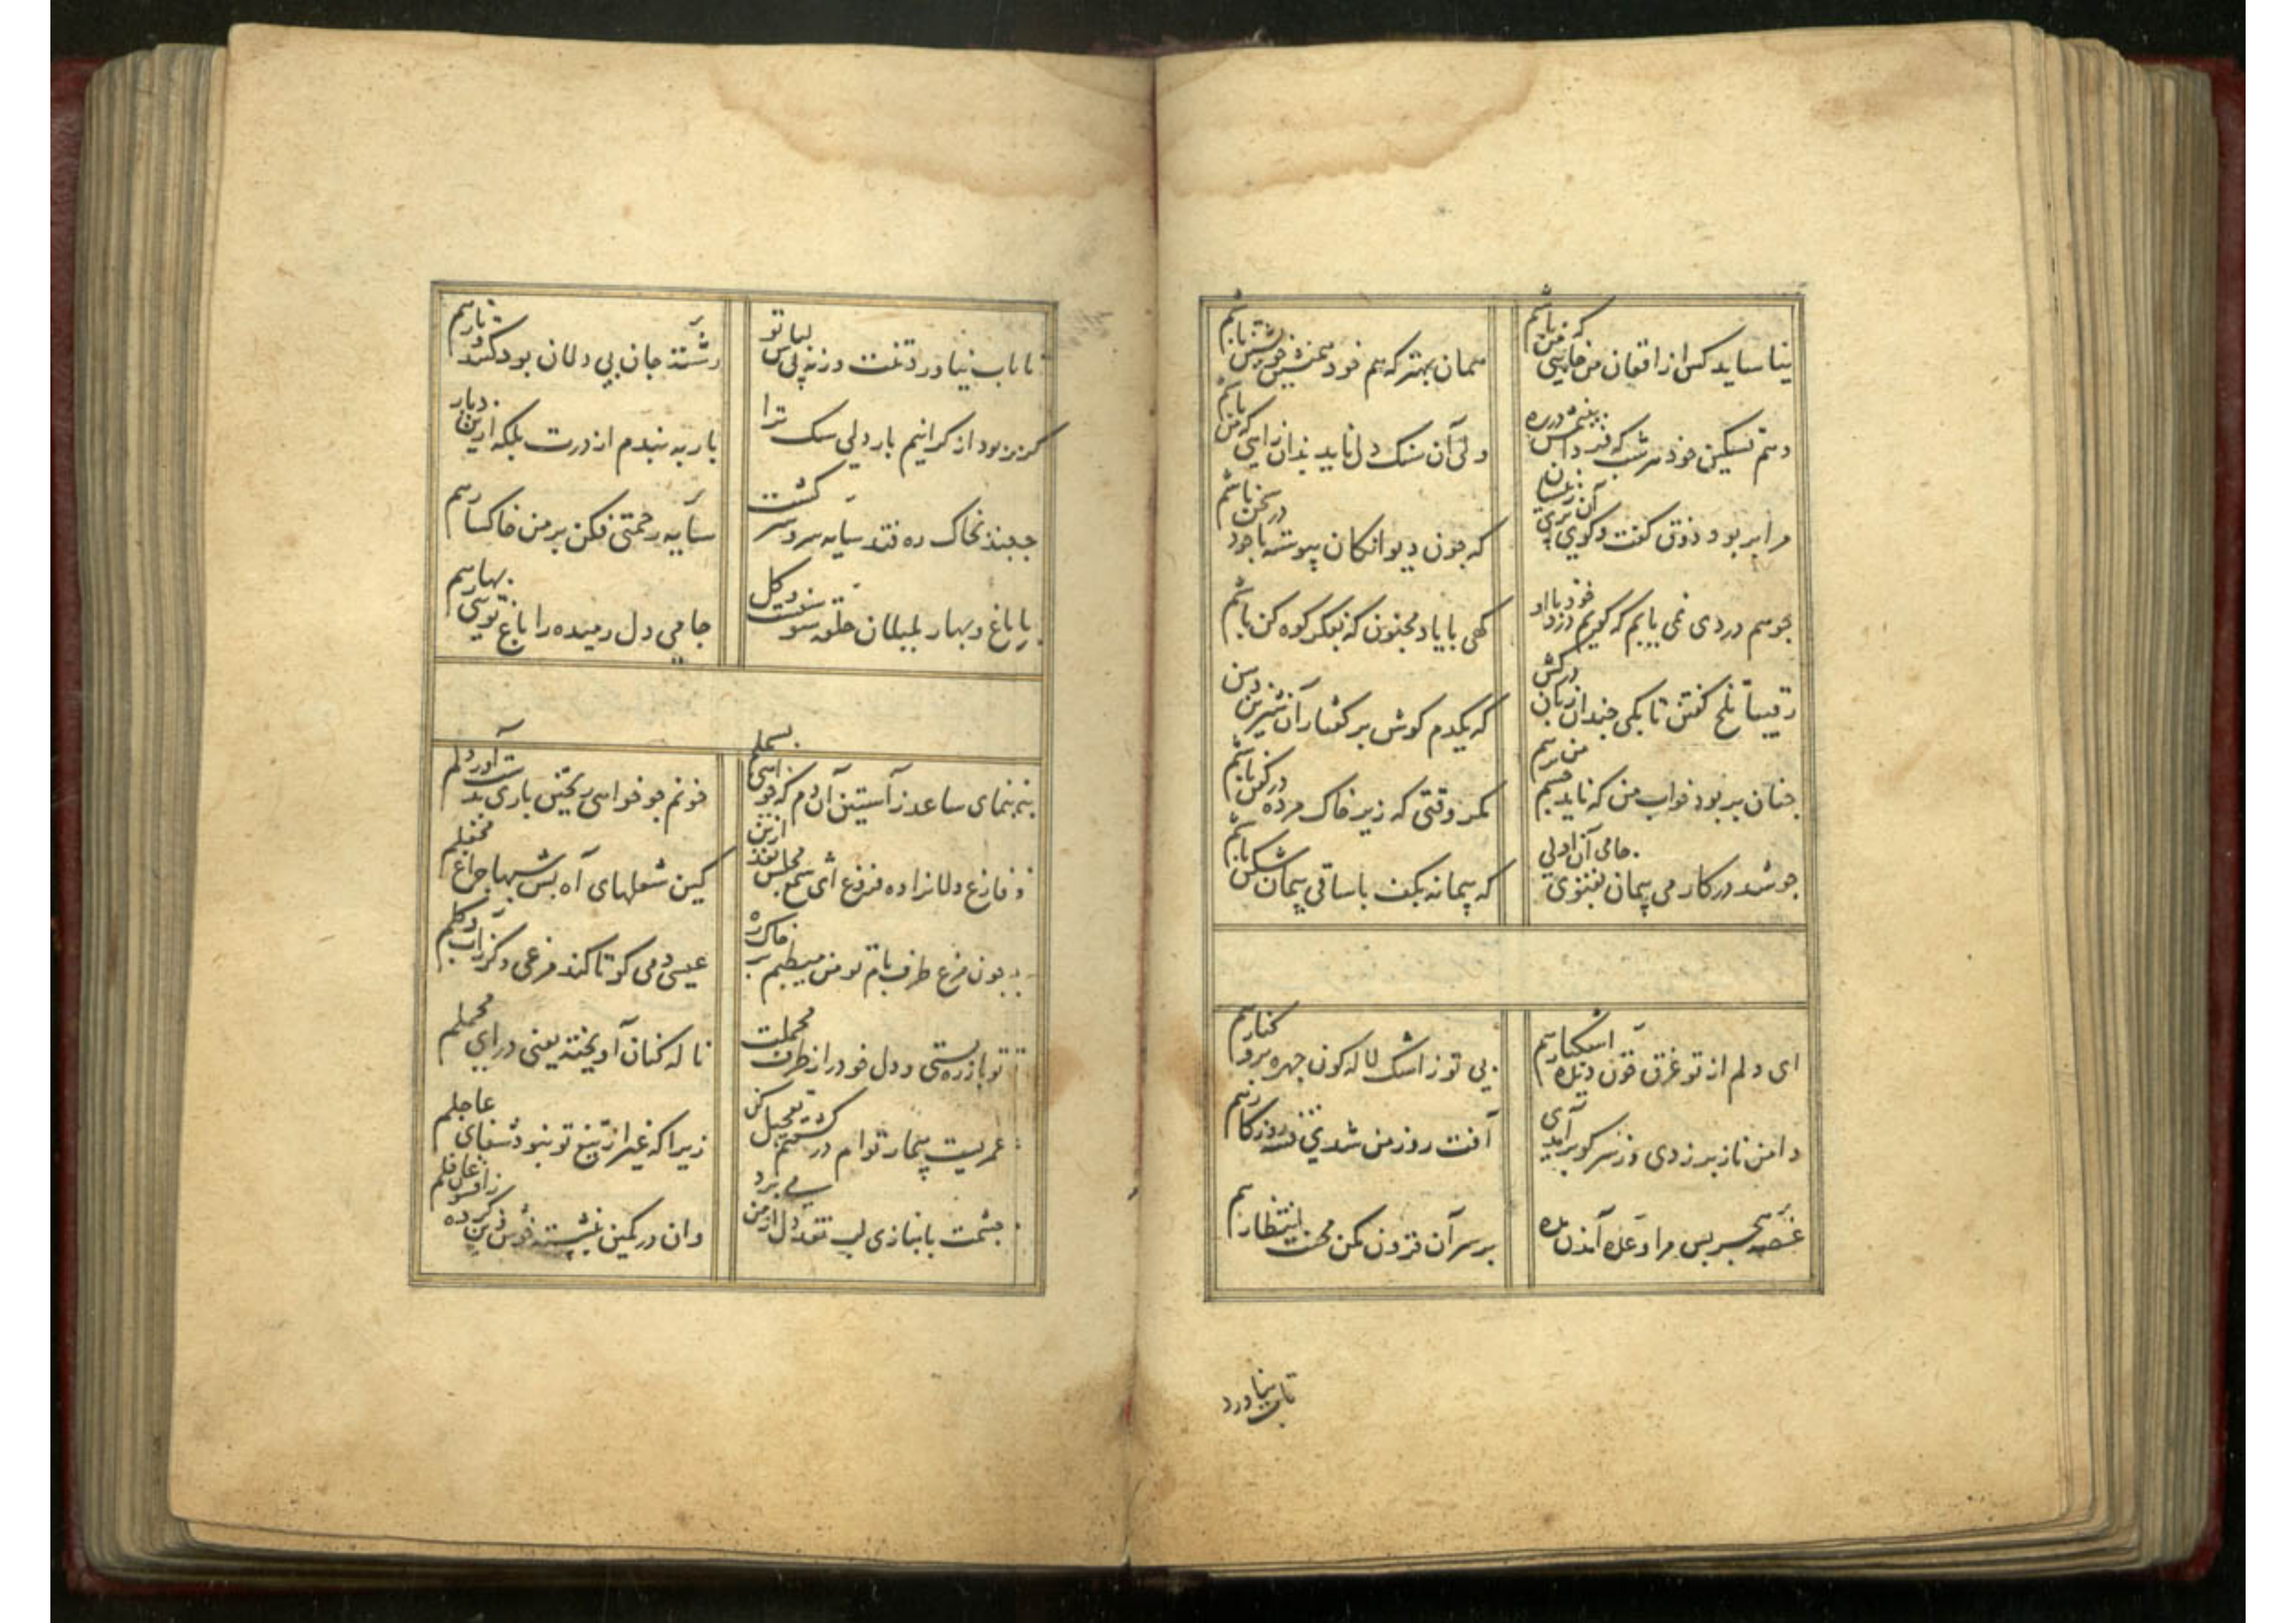 نیاساید کس از افغان من جایی که من باشم
همان بهتر که هم خود همنشین خویشتن باشم
دهم تسکین خود هر شب که فردا بینمش در ره
ولی آن سنگ دل ناید بدان راهی که من باشم
مرا بر بود ذوق گفت و گوی آن پری زینسان
که چون دیوانگان پیوسته با خود در سخن باشم
چو هم دردی نمی یابم که گویم درد خود با او
گهی با یاد مجنون که بفکر کوه کن باشم
رقیبا تلخ گفتن تا بکی چندان زبان درکش
که یکدم گوش بر گفتار آن شیرین دهن
چنان بر بود خواب من که ناید چشم من بر هم
مگر وقتی که زیر خاک مرده در کفن باشم
چو شد در کار می پیمان تقوی جامی آن اولی
که پیمانه بکف با ساقی پیمان شکن باشم
ای دلم از تو غرق خون دیده اشکبار هم
بی تو ز اشک لاله کون چهره برو کنار هم
دامن ناز بر زدی وز سر کو بر آمدی
آفت روز من شدی فتنه روزگار هم
غصه هجر بس مرا وعده آمدن مده
بر سر آن فزون مکن محنت انتظار هم
تاب نیاورد
تاب نیاورد تنت ورنه پی لباس تو
رشته جان بی دلان بود کشد تار هم
کر نبود از کرانیم بار دلی سک ترا
بار به بندم از درت بلکه ازین دیار
چند بخاک ره فتد سایه سرو سرکشت
سایه رحمتی فکن بر من خاکسار هم
با باغ و بهار بلبلان جلوه سوسنست و گل
جامی دل رمیده را باغ تویی بهار هم
بنمای ساعد ز آستین آن دم که خواهی بسملم
خونم چو خواهی ریختن باری بدست آور دلم
فارغ دلانرا ده فروغ ای شمع مجلس بعد ازین
کین شعلهای آه بس شبها چراغ محفلم
چون مرغ طرف بام تو من میطپم بر خاک ره
عیسی دمی کو تا کند مرغی دگر ز آب و گلم
تو بار بستی و دل خود را از طرف محملت
ناله کنان آویخته یعنی درای محملم
عمریست بیمار توام در کشتنم تعجیل کن
زیرا که غیر از تیغ تو نبود شفای عاجلم
چشمت ببازی لب نقد دل از من می برد
وان در کمین بنشسته خوش زین کرده زانسو غافلم